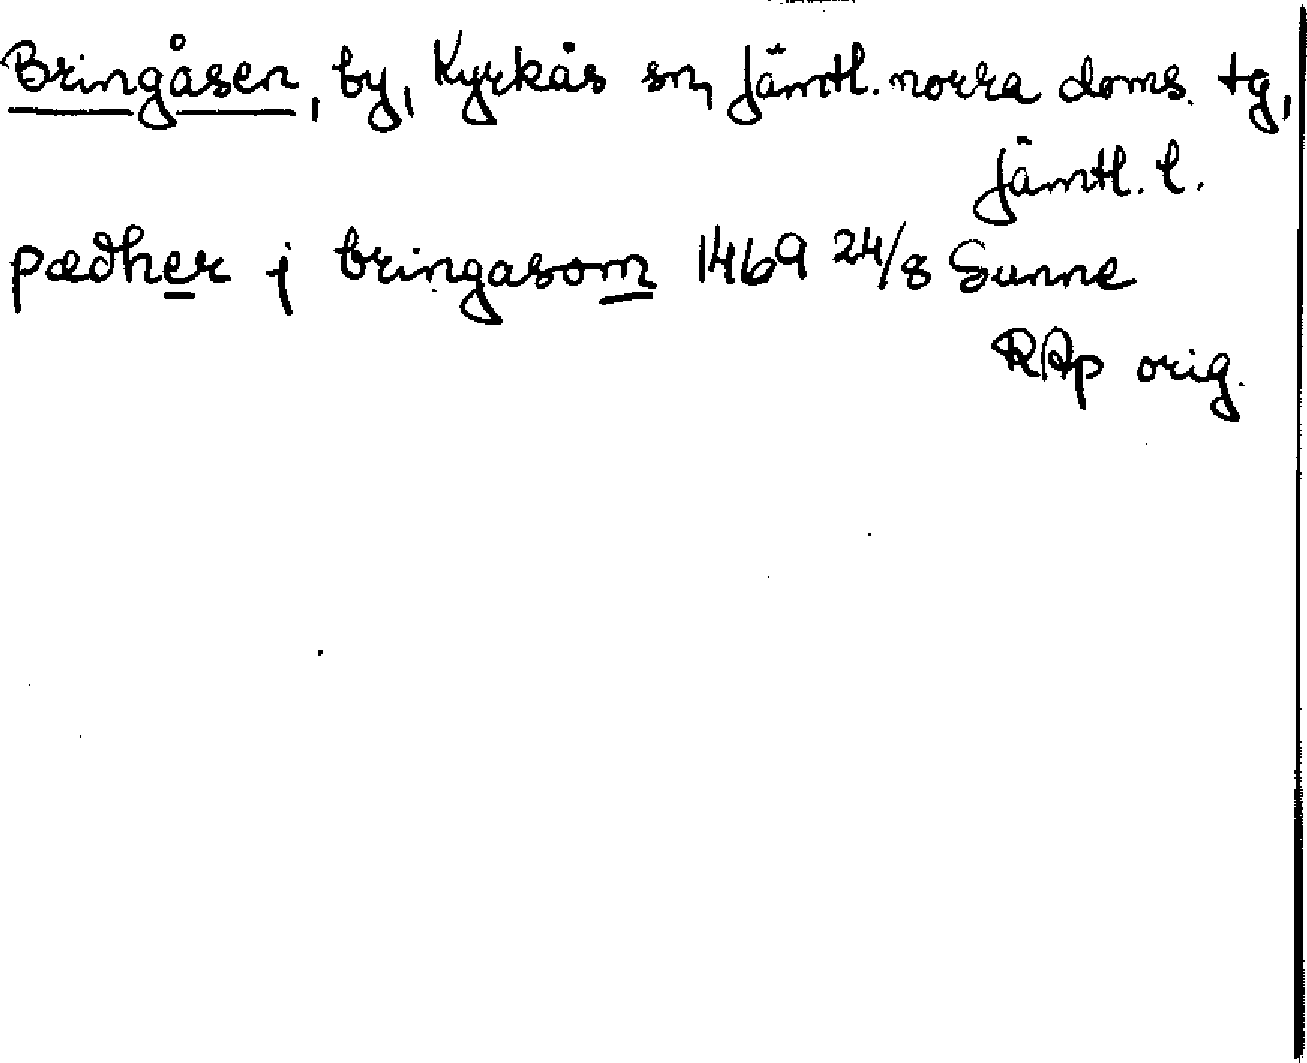 Bringåsen, by, Kyrkås sn, Jämtl. norra doms. tg,
Jämtl. l.
pædher j bringasom 1469 24/8 Sunne
RAp orig.